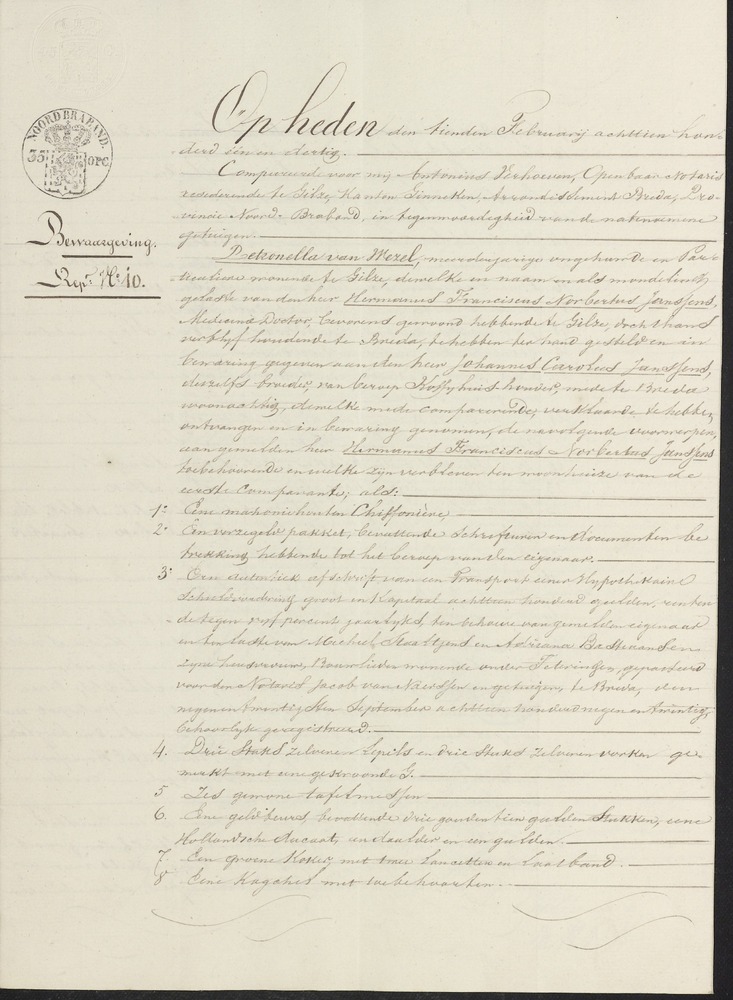 NOORD BRABAND.
35 OPC.
Bewaargeving.
Repm. No. 10.
Op heden den tienden Februarij achttien hon-
derd één en dertig.
Compareerde voor mij Antonius Verhoeven, Openbaar Notaris
residerende te Gilze, Kanton Ginneken, Arrondissement Breda, Pro-
vincie Noord-Braband, in tegenwoordigheid van de natenoemene
getuigen.
Petronella van Wezel, meerderjarige ongehuwde en Par-
ticuliere wonende te Gilze, dewelke in naam en als mondelings
gelaste van den heer Hermanus Franciscus Norbertus Janssens,
Medicinae Doctor, bevorens gewoond hebbende te Gilze, doch thans
verblyf houdende te Breda, te hebben ter hand gesteld en in
bewaring gegeven aan den heer Johannes Carolus Janssens,
deszelfs broeder, van beroep Koffyhuis houder, mede te Breda
woonachtig, dewelke mede comparerende, verklaarde te hebben
ontvangen en in bewaring genomen, de navolgende voorwerpen,
aan gemelden heer Hermanus Franciscus Norbertus Janssens
toebehoorende en welke zyn verbleven ten woonhuize van de
eerste Comparante; als:
1o Eene mahoniehouten Chiffonière,
2o Een verzegeld pakket, bevattende schrifturen en documenten be
trekking hebbende tot het beroep van den eigenaar.
3o Een autentiek afschrift van een Transport eener Hypothekaire
Schuldvordering groot in Kapitaal achttien honderd gulden, renten
de tegen vyf percent jaarlyks, ten behoeve van gemelden eigenaar
en ten laste van Michiel Staaltjens en Adriana Bastiaansen
zyne huisvrouw, Bouwlieden wonende onder Teteringen, gepasseerd
voor den Notaris Jacob van Naerssen en getuigen, te Breda, den
negen en twintigsten September achttien honderd negen en twintig,
behoorlyk geregistreerd.
4. Drie stuks zilveren lepels en drie stuks zilveren vorken ge-
merkt met eene gekroonde G.
5 Zes gewone tafelmessen
6. Eene geldbeurs, bevattende drie gouden tien gulden stukken, eene
Hollandsche ducaat, en daalder en een gulden.
7. Een groene Koker, met twee Lancetten en laatband.
8 Eene Kagchel met toebehoorten.